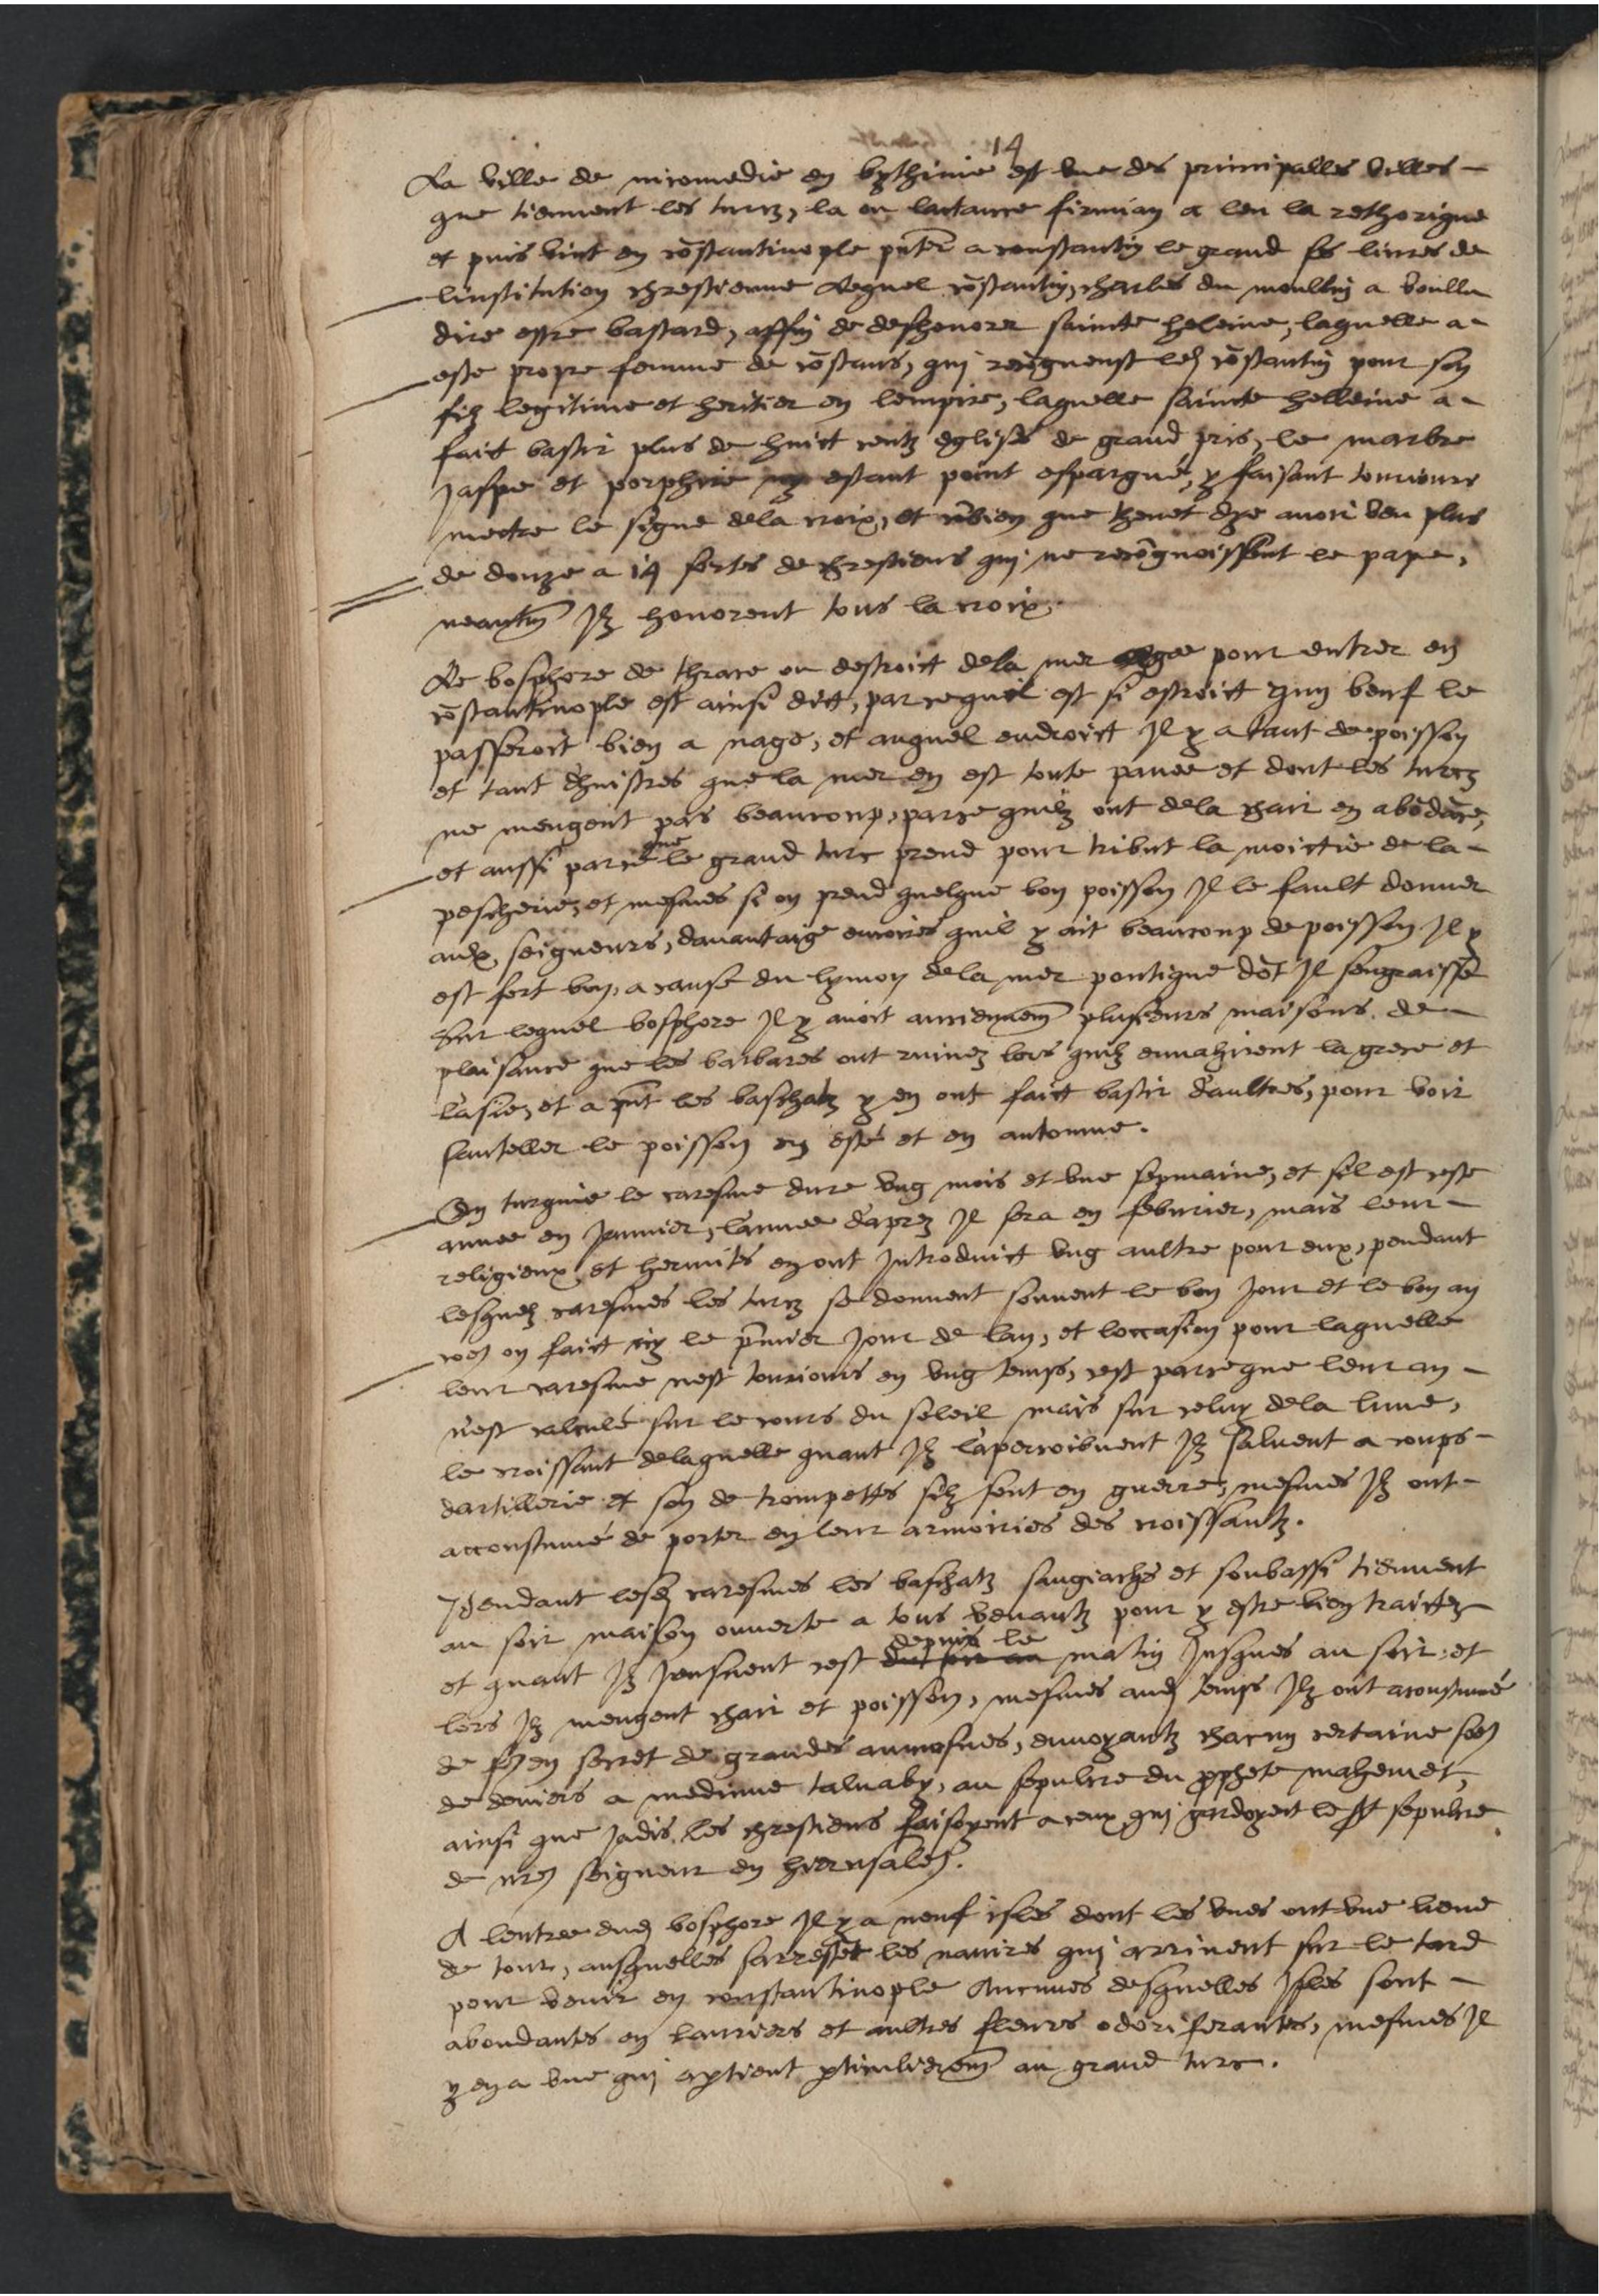 14
La ville de nicomedie en bythinie est vne des principalles villes
que tiennent les turcz, la ou lactance firmian a leu la rethorique
et puis vint en cōstantinople pn̄ter a constantin le grand ses liures de
linstitution chrestienne Lequel cōstantin, charles du moullin a voullu
dire estre bastard, affin de deshonorer saincte heleine, laquelle a
este propre femme de cōstans, qui recōgneust led cōstantin pour son
filz legitime et heritier en lempire, laquelle saincte helleine a
faict bastir plus de huict centz eglises de grand pris, le marbre
Jaspe et porphire ny estant point espargné, y faisant tousiours
mectre le signe dela croix, et cōbien que theuet dye auoir veu plus
de douze a 14 sortes de chrestiens qui ne recōgnoissent le pape,
neantm̄ Jlz honorent tous la croix.
Le bosphore de thrace ou destroict dela mer egee pour entrer en
cōstantinople est ainsi dict, parcequil est si estroict qun beuf le
passeroit bien a nage, et auquel endroict Jl y a tant de poisson
et tant dhuistres que la mer en est toute pauee et dont les turcz
ne mengent pas beaucoup, parce quilz ont dela chair en abōdāce,
et aussi parce que le grand turc prend pour tribut la moictie de la
pescherie, et mesmes si on prend quelque bon poisson Jl le fault donner
aux seigneurs, dauantaige encores quil y ait beaucoup de poisson Jl y
est fort bon, a cause du lymon dela mer pontique dōt Jl sengraisse
Sur lequel bosphore Jl y auoit anciennem̄ plusieurs maisons de
plaisance que les barbares ont ruinez lors quilz enuahirent la grece et
l'asie, et a pn̄t les baschatz y en ont faict bastir d'aultres, pour voir
saulteller le poisson en esté et en autonne.
En turquie le caresme dure vng mois et vne sepmaine, et sil est ceste
annee en Januier, l'annee d'aprez Jl sera en feburier, mais leur
religieux et hermites en ont Introduict vng aultre pour eux, pendant
lesquelz caresmes les turcz se donnent souuent le bon Jour et le bon an
coē on faict icy le p̄mier Jour de lan, et loccasion pour laquelle
leur caresme nest tousiours en vng temps, cest parceque leur an
n'est calculé sur le cours du soleil mais sur celuy dela lune,
le croissant delaquelle quant Jlz l'apercoibuent Jlz saluent a coups
dartillerie et son de trompettes silz sont en guerre, mesmes Jlz ont
accoustumé de porter en leur armoiries des croissantz.
Pendant lesd caresmes les baschatz sangiachs et soubassi tiennent
au soir maison ouuerte a tous venantz pour y estre bien traictez
et quant Jlz Jeusnent cest depuis le matin Jusques au soir et
lors Jlz mengent chair et poisson, mesmes aud temps Jlz ont acoustumé
de fē en secret de grandes aumosnes, enuoyantz chacun certaine soē
de deniers a medinne talnaby, au sepulcre du prophete mahemet,
ainsi que Jadis les chrestiens faisoyent a ceux qui gardoyent le st sepulcre
de nrē seigneur en hierusalem.
A lentree dud bosphore Jl y a neuf isles dont les vnes ont vne lieue
de tour, ausquelles sarrestēt les nauires qui arriuent sur le tard
pour venir en constantinople Aucunes desquelles Jsles sont
abondantes en lauriers et aultres fleurs odoriferantes, mesmes Jl
y en a vne qui aptient pticulierem̄ au grand turc.